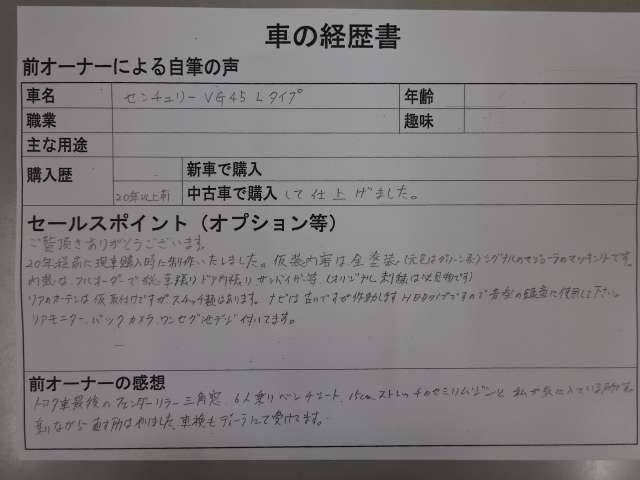 車の経歴書
前オーナーによる自筆の声
車名 センチュリー VG45 Lタイプ 年齢
職業 趣味
主な用途
購入歴 新車で購入
20年以上前 中古車で購入して仕上げました。
セールスポイント（オプション等）
ご覧頂きありがとうございます。
20年程前に現車購入時に制作いたしました。仮装内容は全塗装(元色はグリーン系)シングルのマジョーラのマッキントです。
内装は、フルオーダーで総革張りドア内張りサンバイザー等(オリジナル刺繍は必見物です)
リアカーテンは仮取付けですがスイッチ類はあります。ナビは古いですが作動しますHDDタイプですので音楽の録音に使用して下さい。
リアモニター、バックカメラ、ワンセグ地デジ付いてます。
前オーナーの感想
トヨタ車最後のフェンダーミラー三角窓、6人乗りベンチシート、15cmストレッチのセミリムジンと私が気に入っている所です。
乗りながら直す所はやりました、車検もディーラーにて受けてます。